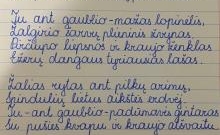 Ju ant gaublio - mažas lopinėlis,
Žalgirio šarvų plieninis žvynas,
Pirčiupio liepsnos ir kraujo ženklas
Ežerų dangaus tyriausias lašas.
Žalias rytas ant pilkų arimų,
Spindulių lietus aikštės erdvėj.
Tu - ant gaublio - padūmavęs gintaras
Su pušies kvapu ir kraujo atšvaitu